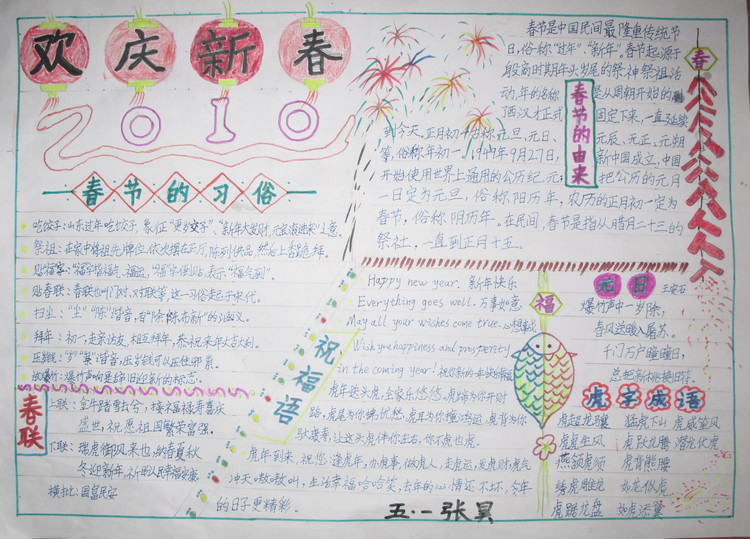 欢庆新春
2010
春节的习俗
吃饺子：山东过年吃饺子，象征“更岁交子”、“新年大发财，元宝滚进来”之意。
祭祖：在家中将祖先牌位依次摆在正厅，陈列供品，然后上香
贴春联：春联也叫门对、对联等，这一习俗起于宋代。
扫尘：“尘”“陈”谐音，有“除陈布新”的涵义。
拜年：初一，走亲访友，相互拜年，恭祝来年大吉利。
压岁钱：“岁”“祟”谐音，压岁钱可以压住邪祟。
放爆竹：爆竹声响是辞旧迎新的标志。
春联
上联：金牛踏雪去今，接福福寿喜庆
盛世，祝愿祖国繁荣富强。
下联：瑞虎御风来也，纳吉夏秋
冬迎新年，祈盼人民幸福安康
横批：国富民安
春节是中国民间最隆重传统节
日，俗称“过年”、“新年”。春节起源于
殷商时期年头岁尾的祭神祭祖活
动，年的名称是从周朝开始的，
西汉才正式固定下来，一直延续
春节的由来
到今天，正月初一古称元旦、元日、元辰、元正、元朔
等，俗称年初一，1949年9月27日，新中国成立，中国
开始使用世界上通用的公历纪元，把公历的元月
一日定为元旦，俗称阳历年，农历的正月初一定为
春节，俗称阴历年。在民间，春节是指从腊月二十三的
祭社，一直到正月十五。
春
祝福语
Happy new year. 新年快乐
Everything goes well. 万事如意
May all your wishes come true. 心想事成
Wish you happiness and prosperity
in the coming year! 祝你新的一年
虎年送头虎，全家乐悠悠。虎蹄为你开财
路，虎尾为你拂忧愁，虎耳为你撞鸿运，虎背为你
驮凌寿，让这头虎伴你左右，你不虎也虎。
虎年到来，祝您：逢虎年，办虎事，做虎人，走虎运，发虎财；虎气
冲天嗷嗷叫，生活幸福哈哈笑，去年的心情还不坏，今年
的日子更精彩。
福
元日
王安石
爆竹声中一岁除，
春风送暖入屠苏。
千门万户曈曈日，
总把新桃换旧符。
虎字成语
虎踞龙骧 猛虎下山 虎威策风
虎虎生风 虎跃龙腾 潜龙伏虎
燕颔虎颈 虎背熊腰
绣虎雕龙 如龙似虎
虎踞龙盘 如虎添翼
五·一张昊